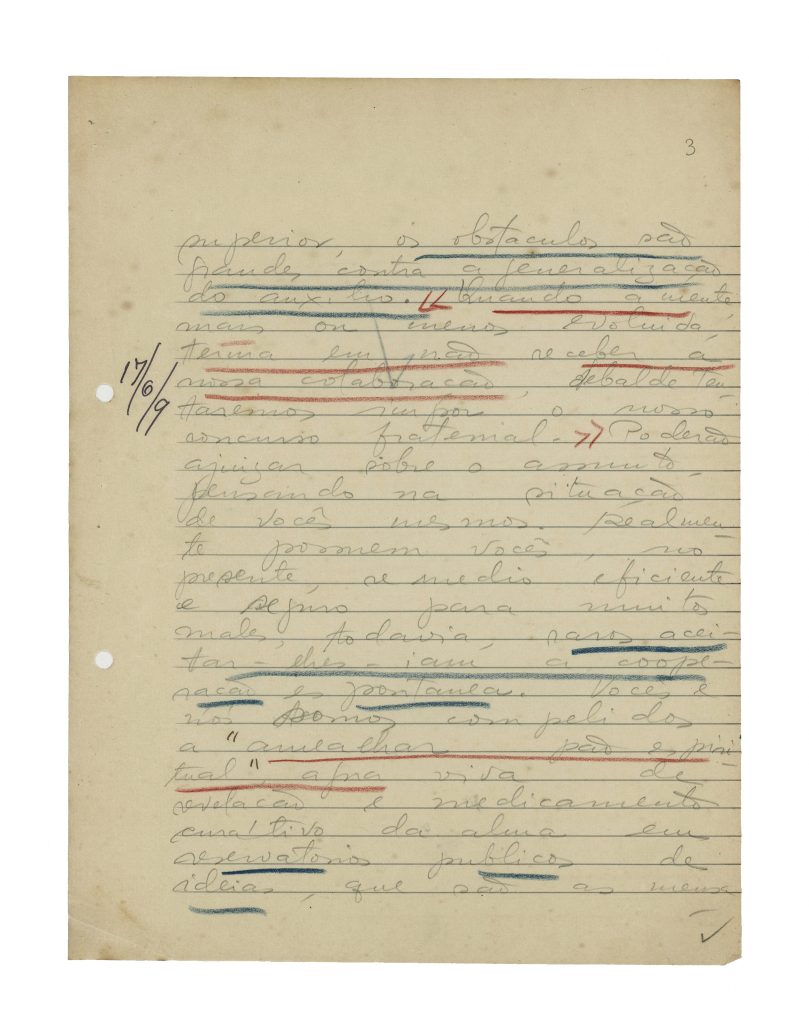 3
superior, os obstaculos são
grandes contra a generalização
do auxilio. Quando a mente,
mais ou menos evoluida,
teima em não receber a
17/6/9
nossa colaboração, debalde ten-
taremos impor o nosso
concurso fraternal. Poderão
ajuizar sobre o assunto,
pensando na situação
de vocês mesmos. Realmen-
te possuem vocês, no
presente, remedio eficiente
e seguro para muitos
males, todavia, raros acei-
tar-lhes-iam a coope-
ração espontanea. Vocês e
nós somos compelidos
a "amealhar pão espiri-
tual", agua viva de
revelação e medicamento
curativo da alma em
reservatorios publicos de
ideias, que são as mensa